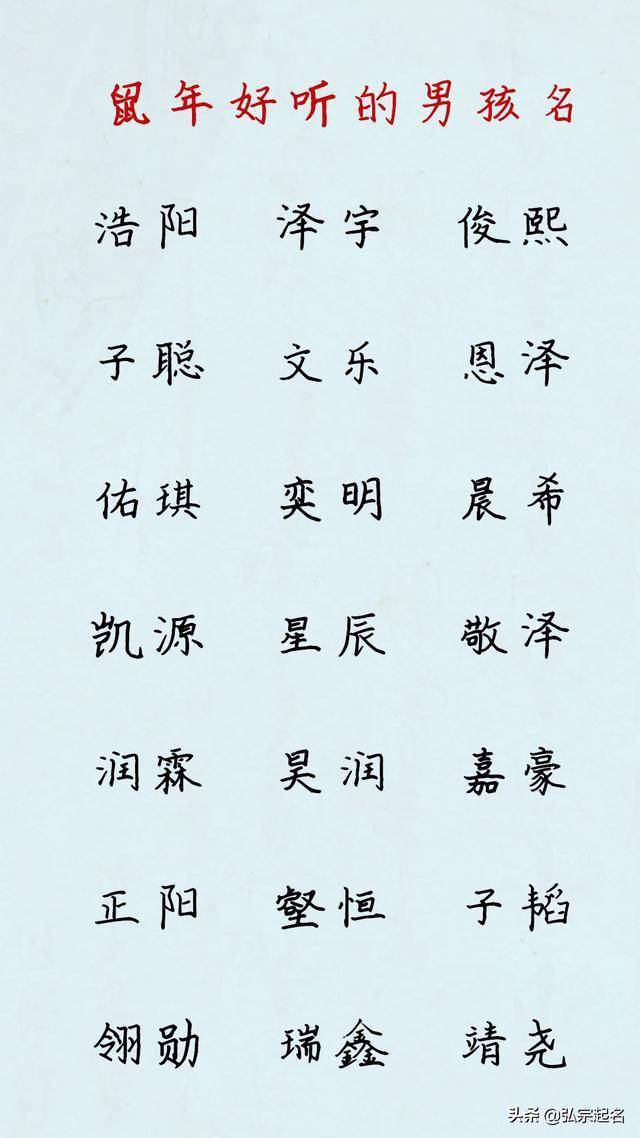 鼠年好听的男孩名
浩阳 泽宇 俊熙
子聪 文乐 恩泽
佑琪 奕明 晨希
凯源 星辰 敬泽
润霖 昊润 嘉豪
正阳 壑恒 子韬
翎勋 瑞鑫 靖尧
头条 @弘宗起名